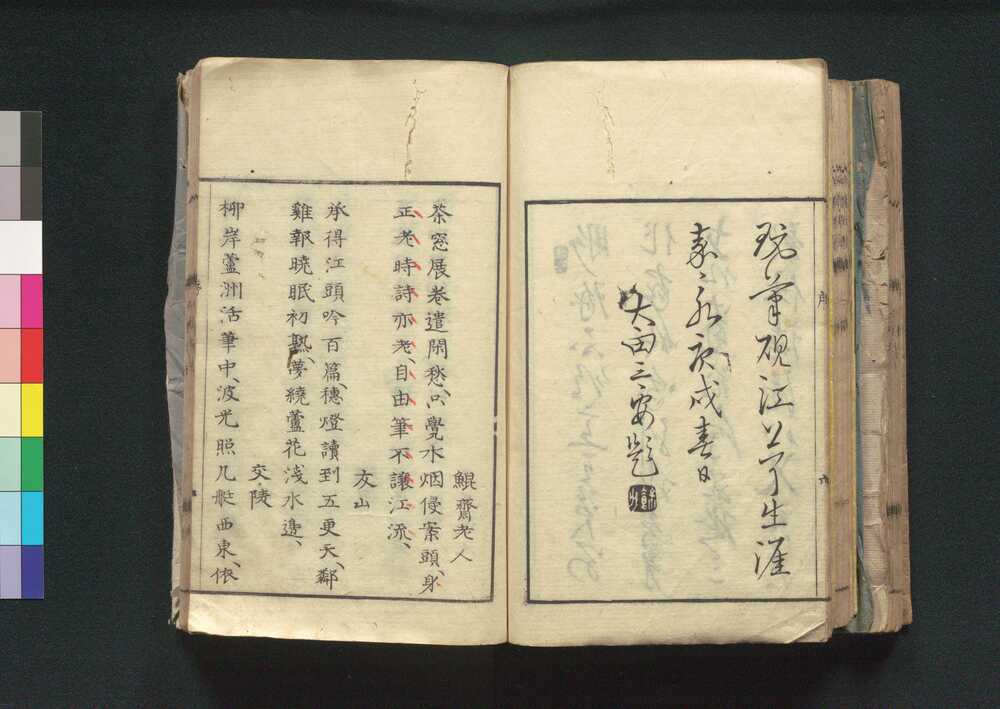 筆硯江公了生涯
嘉永庚戌春日
太田三安題
鯤齋老人
茶窓展卷遣閑愁、只覺水烟侵案頭、身
正老時詩亦老、自由筆不讓江流、
友山
承得江頭吟百篇、穗燈讀到五更天、鄰
雞報曉眠初熟、夢繞蘆花淺水邊、
交陵
柳岸蘆洲活筆中、波光照几艇西東、依
序